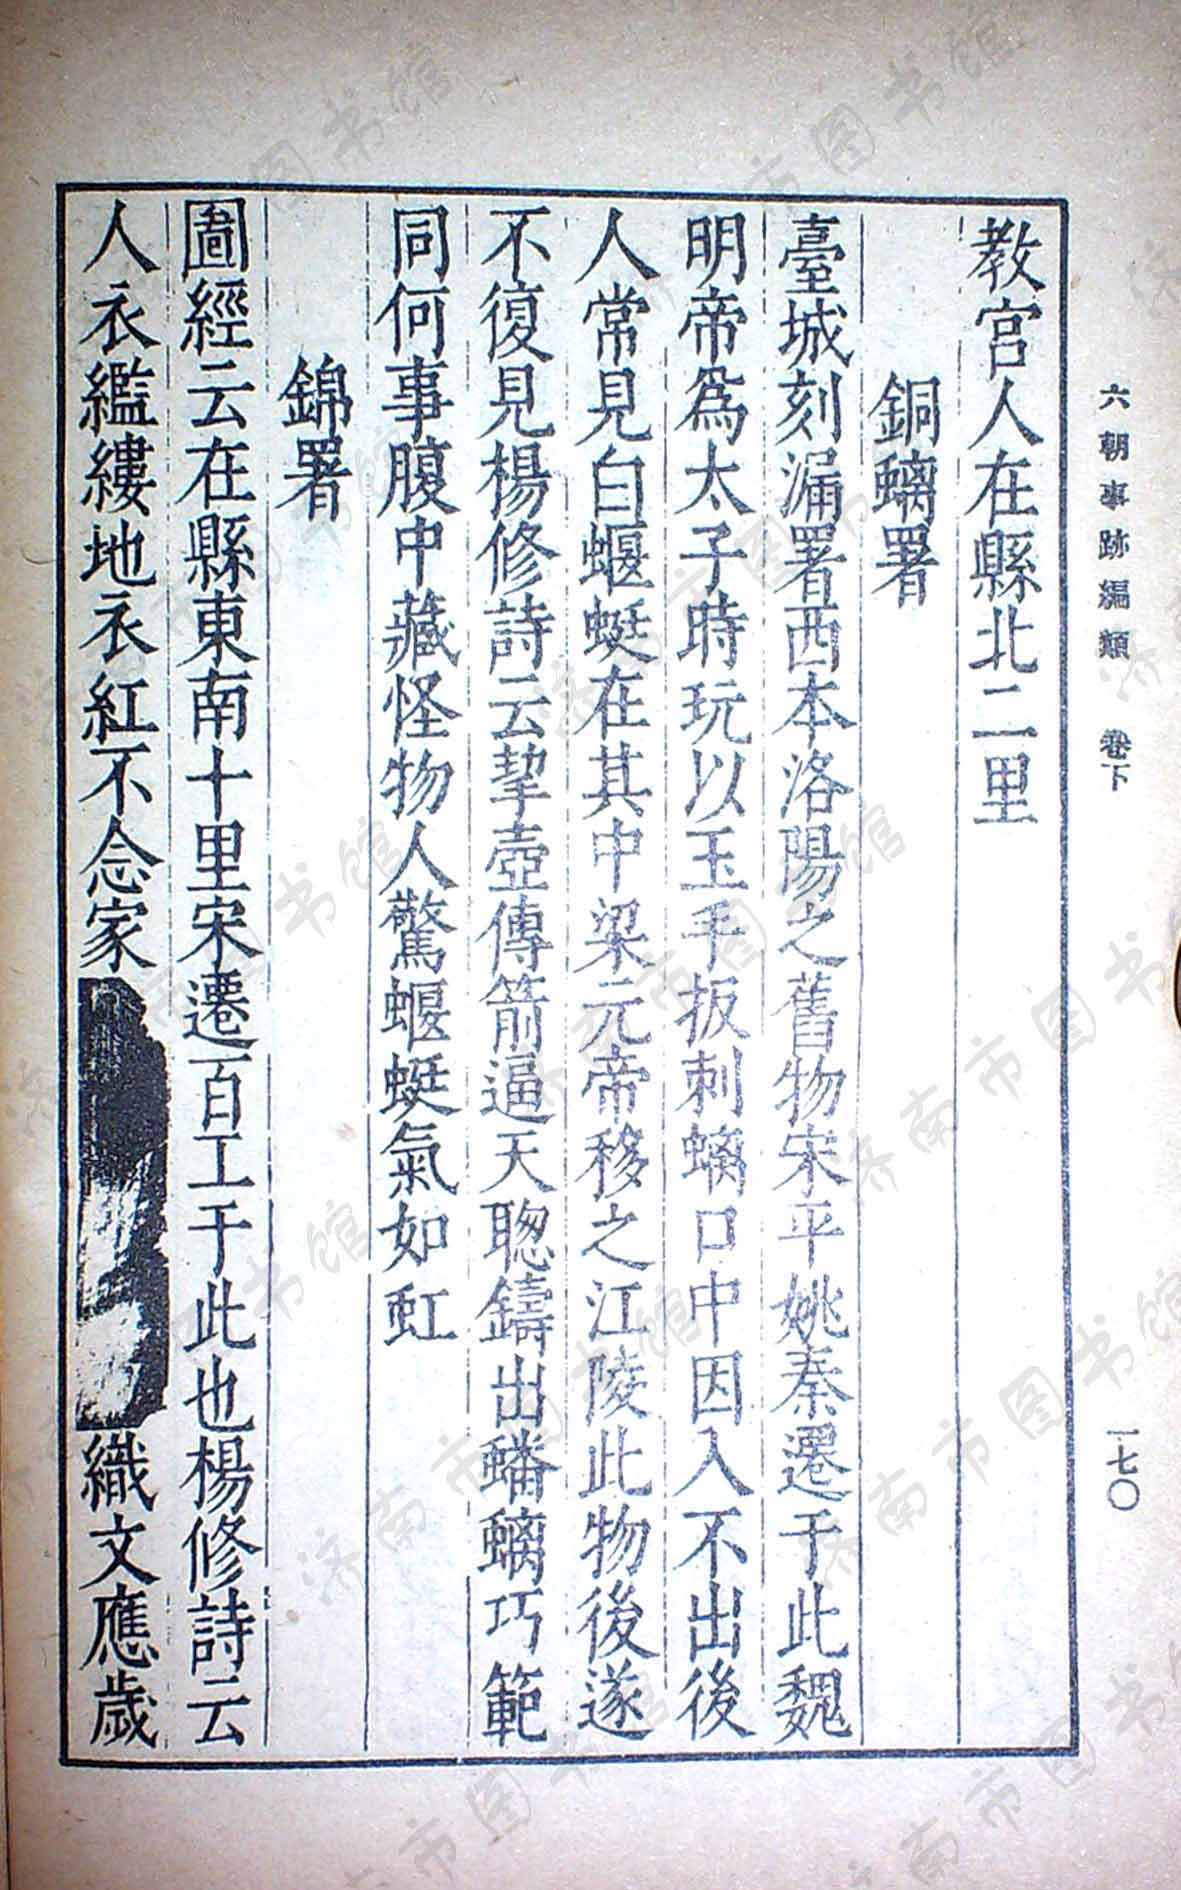 六朝事跡編類　卷下
一七〇
教宮人在縣北二里
銅螭署
臺城刻漏署西本洛陽之舊物宋平姚秦遷于此魏
明帝爲太子時玩以玉手扳刺螭口中因入不出後
人常見白蝘蜓在其中梁元帝移之江陵此物後遂
不復見楊修詩云挈壺傳箭逼天聰鑄出蟠螭巧範
同何事腹中藏怪物人驚蝘蜓氣如虹
錦署
圖經云在縣東南十里宋遷百工于此也楊修詩云
人衣繿縷地衣紅不念家織文應歲
济南市图书馆